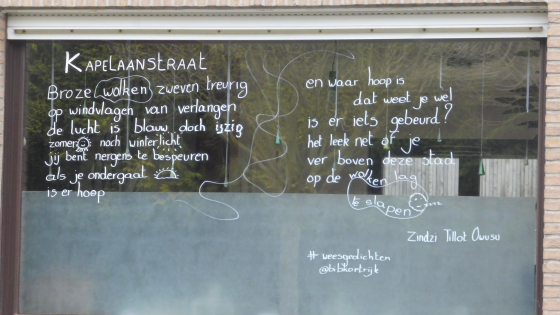 KAPELAANSTRAAT
Broze wolken zweven treurig
op windvlagen van verlangen
de lucht is blauw doch ijzig
zomer noch winterlicht
jij bent nergens te bespeuren
als je ondergaat
is er hoop
en waar hoop is
dat weet je wel
is er iets gebeurd?
het leek net of je
ver boven deze stad
op de wolken lag
te slapen
Zindzi Tillot Owusu
# raamgedichten
@bibkortrijk